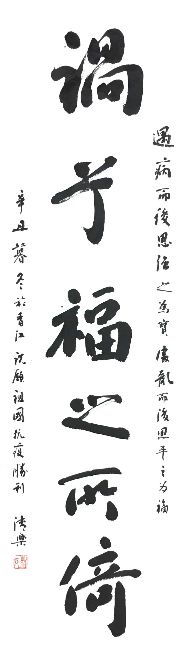 遇病而後思強之為寶處亂而後思平之为福
禍兮福之所倚
辛丑暮冬於香江祝願祖國抗疫勝利 清樂